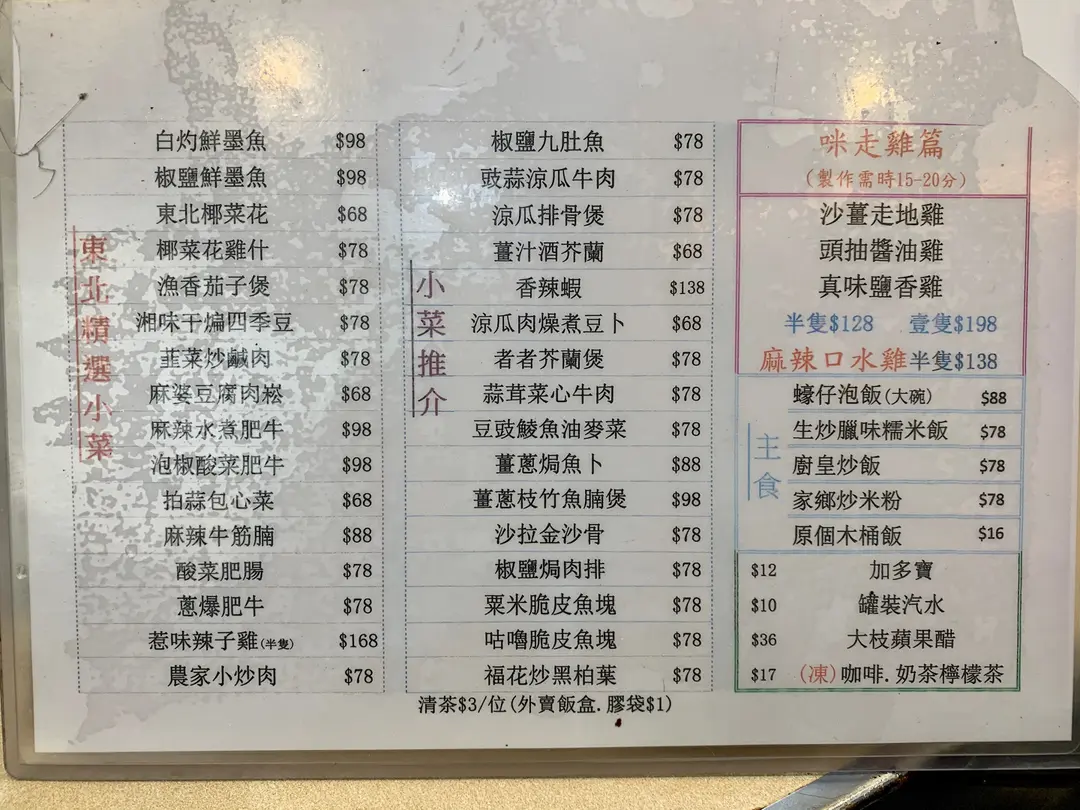 東北精選小菜
白灼鮮墨魚 $98
椒鹽鮮墨魚 $98
東北椰菜花 $68
椰菜花雞什 $78
漁香茄子煲 $78
湘味干煸四季豆 $78
韭菜炒鹹肉 $78
麻婆豆腐肉崧 $68
麻辣水煮肥牛 $98
泡椒酸菜肥牛 $98
拍蒜包心菜 $68
麻辣牛筋腩 $88
酸菜肥腸 $78
蔥爆肥牛 $78
惹味辣子雞(半隻) $168
農家小炒肉 $78
小菜推介
椒鹽九肚魚 $78
豉蒜涼瓜牛肉 $78
涼瓜排骨煲 $78
薑汁酒芥蘭 $68
香辣蝦 $138
涼瓜肉燥煮豆卜 $68
者者芥蘭煲 $78
蒜茸菜心牛肉 $78
豆豉鯪魚油麥菜 $78
薑蔥焗魚卜 $88
薑蔥枝竹魚腩煲 $98
沙拉金沙骨 $78
椒鹽焗肉排 $78
粟米脆皮魚塊 $78
咕嚕脆皮魚塊 $78
福花炒黑柏葉 $78
咪走雞篇
(製作需時15-20分)
沙薑走地雞
頭抽醬油雞
真味鹽香雞
半隻$128 壹隻$198
麻辣口水雞半隻$138
主食
蠔仔泡飯(大碗) $88
生炒臘味糯米飯 $78
廚皇炒飯 $78
家鄉炒米粉 $78
原個木桶飯 $16
$12 加多寶
$10 罐裝汽水
$36 大枝蘋果醋
$17 (凍)咖啡.奶茶檸檬茶
清茶$3/位(外賣飯盒.膠袋$1)